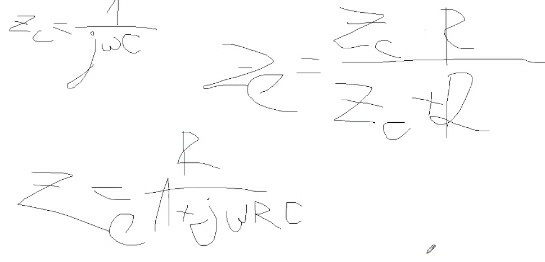 Zc = 1/jωC
Ze = Zc R/Zc + R
Ze = R/1 + jωRC